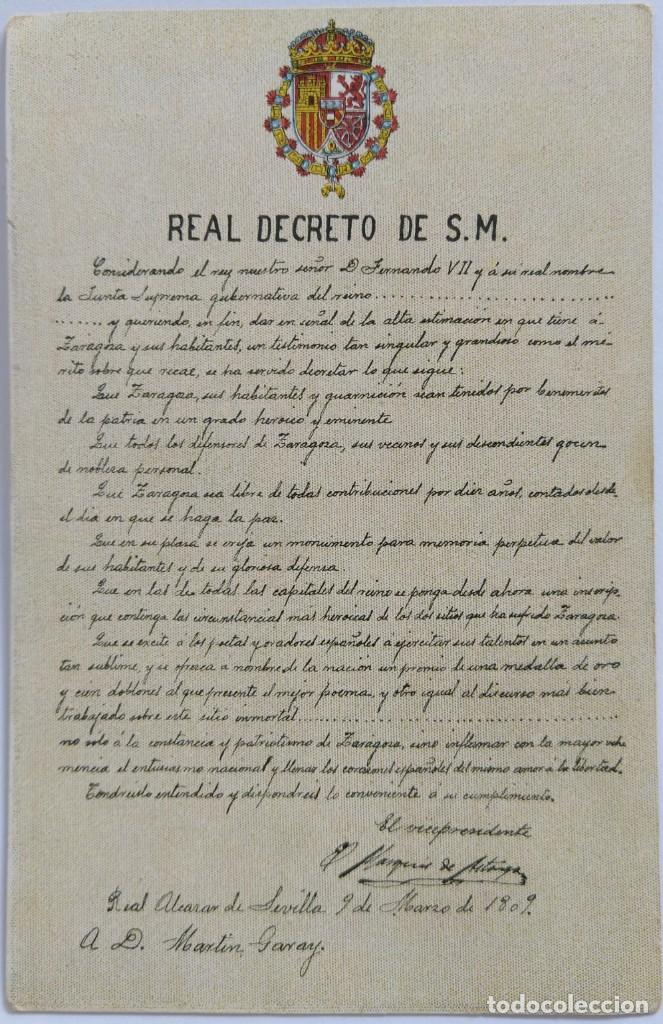 REAL DECRETO DE S.M.
Considerando el rey nuestro señor D Fernando VII y á su real nombre
la Junta Suprema gubernativa del reino..............................
........ y queriendo, en fin, dar en señal de la alta estimacion en que tiene á
Zaragoza y sus habitantes, un testimonio tan singular y grandioso como el mé-
rito sobre que recae, se ha servido decretar lo que sigue:
Que Zaragoza, sus habitantes y guarnición sean tenidos por beneméritos
de la patria en un grado heroico y eminente
Que todos los defensores de Zaragoza, sus vecinos y sus descendientes gocen
de nobleza personal.
Que Zaragoza sea libre de todas contribuciones por diez años, contados desde
el dia en que se haga la paz.
Que en su plaza se erija un monumento para memoria perpetua del valor
de sus habitantes y de su gloriosa defensa.
Que en las de todas las capitales del reino se ponga desde ahora una inscrip-
ción que contenga las circunstancias más heroicas de los dos sitios que ha sufrido Zaragoza.
Que se excite á los poetas y oradores españoles a ejercitar sus talentos en un asunto
tan sublime, y se ofrezca a nombre de la nación un premio de una medalla de oro
y cien doblones al que presente el mejor poema, y otro igual al discurso más bien
trabajado sobre este sitio inmortal..........................................
no sólo á la constancia y patriotismo de Zaragoza, sino inflamar con la mayor vehe
mencia el entusiasmo nacional y llenar los corazones españoles del mismo amor á la libertad.
Tendreislo entendido y dispondreis lo conveniente á su cumplimiento.
El vicepresidente
Marqués de Astorga
Real Alcazar de Sevilla 9 de Marzo de 1809.
A D. Martin Garay.
todocoleccion